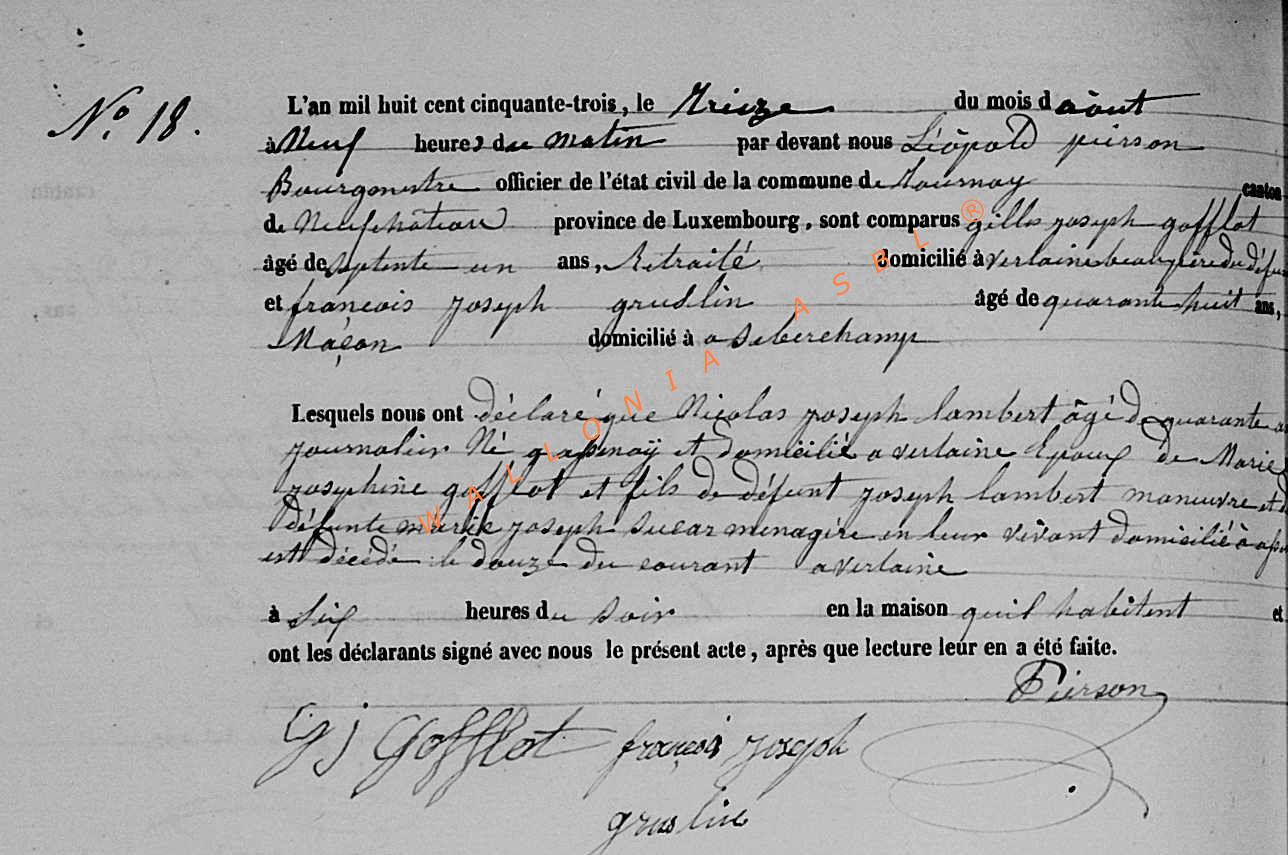 N° 18.
L'an mil huit cent cinquante-trois, le Treize du mois d août
à Neuf heures du matin par devant nous Léopold pierson
Bourgmestre officier de l'état civil de la commune de Tournay canton
de Neufchâteau province de Luxembourg, sont comparus gilles joseph gofflot
âgé de septente un ans, Retraité domicilié à verlaine beaupère du défu
et francois joseph gruslin âgé de quarante huit ans,
Maçon domicilié à a Seberchamp
Lesquels nous ont déclaré que Nicolas joseph lambert âgé de quarante
journalier Né a et domicilié a verlaine Epoux de Marie
josephine gofflot et fils de défunt joseph lambert manœuvre et d
défunte marie joseph menagère en leur vivant domicilié à
est décédé le douze du courant a verlaine
à Six heures du soir en la maison quil habitent et
ont les déclarants signé avec nous le présent acte, après que lecture leur en a été faite.
Pierson
GJ Gofflot françois joseph
gruslin
WALLONIA ASBL ®